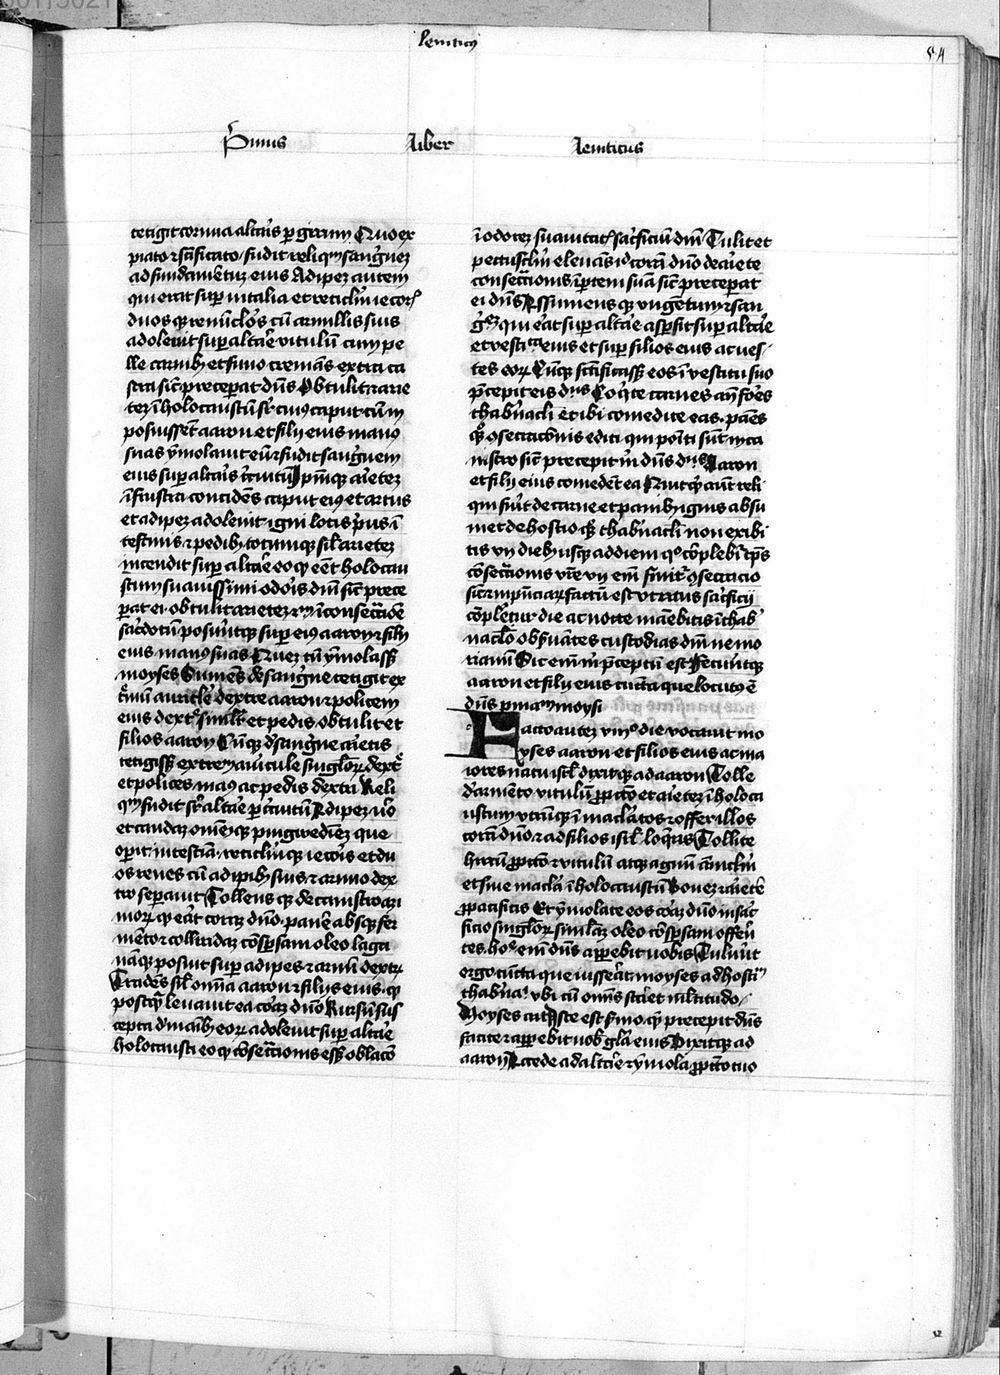 leuiticus
54
Primus Liber Leuiticus
tetigit cornua altaris per girum Quo ex
piato et sanctificato fudit reliquum sanguinez
ad fundamentum eius Adipez autem
qui erat super uitalia et reticulum iecoris
duosque renunculos cum armillis suis
adoleuit super altare vitulum cum pe
lle carnibus et fimo cremans extra ca
stra sicut preceperat dominus Obtulit et arie
tez in holocaustum super cuius caput cum im
posuissent aaron et filij eius manus
suas ymolauit eum et fudit sanguinem
eius super altaris circuitum ipsumque arietez
in frusta concidens caput eius et artus
et adipez adoleuit igni lotis prius in
testinis et pedibus totumque simul arietez
incendit super altare eo quod esset holocau
stum suauissimi odoris domino sicut prece
perat ei obtulit arietez secundum in consecratione
sacerdotum posueruntque super eius aaron et filij
eius manus suas Quez cum ymolasset
moyses Sumens de sanguine tetigit ex
tremum auricule dextre aaron et policem
eius dextre similiter et pedis obtulit et
filios aaron Cumque de sanguine arietis
tetigisset extremum auricule singulorum dextre
et polices manus ac pedis dextri Reli
quum fudit super altare per circuitum Adipez vero
et caudaz omnemque pinguedinez que
operit intestina reticulumque iecoris et du
os renes cum adipibus suis et armo dex
tro seperauit Tollens que de canistro azi
morum quod erat coraz domino panem absque fer
mento et colliridaz conspersam oleo laga
numque posuit super adipes et armum dextrum
Tradens simul omnia aaron et filijs eius qui
postquam leuauit ea coraz domino Rursum sus
cepta de manibus eorum adoleuit super altare
holocausti eo quod consecrationis esset oblacio
in odorez suauitatis sacrificium domini Tulit et
pectusculum eleuans id coram domino de ariete
consecrationis in partem suam sicut preceperat
ei dominus Assumensque vngentum et san
guinem qui erat super altare aspersit super altare
et vestimenta eius et super filios eius ac ves
tes eorum Cumque sanctificasset eos in vestitu suo
precepit eis dicens Coquite carnes ante fores
thabernacli et ibi comedite eas panes
quoque consecrationis edite qui positi sunt in ca
nistro sicut precepit michi dominus dicens Aaron
et filij eius comedent ea Quitquid autem reli
qui fuerit de carne et panibus ignis absu
met de hostio quoque thabernacli non exibi
tis vij diebus usque ad diem quo complebitur tempus
consecrationis vestre vij enim finitur consecracio
sicut inpresenciarum factum est vt ritus sacrificij
compleretur die ac nocte manebitis in thaber
naculo obseruantes custodias domini ne mo
riamini Sic enim michi preceptum est Feceruntque
aaron et filij eius cuncta que locutus est
dominus per manum moysi
Facto autez viijo die vocauit mo
yses aaron et filios eius ac ma
iores natu israel dixitque ad aaron Tolle
de armento vitulum pro peccato et arietez in holoca
ustum vtrumque in maculatos et offer illos
coram domino et ad filios israel loqueris Tollite
hircum pro peccato et vitulum atque agnum anniculum
et sine macula in holocaustum Bouez et arietem
pro pacificis Et ymolate eos coraz domino in sacri
ficio singulorum similaz oleo conspersam offeren
tes hodie enim dominus apparebit uobis Tulerunt
ergo cuncta que iusserat moyses ad hostium
thabernaculi vbi cum omnis staret multitudo
Moyses ait Iste est sermo quem precepit dominus
facite et apparebit uobis gloria eius Dixitque ad
aaron Accede ad altare et ymola pro peccato tuo